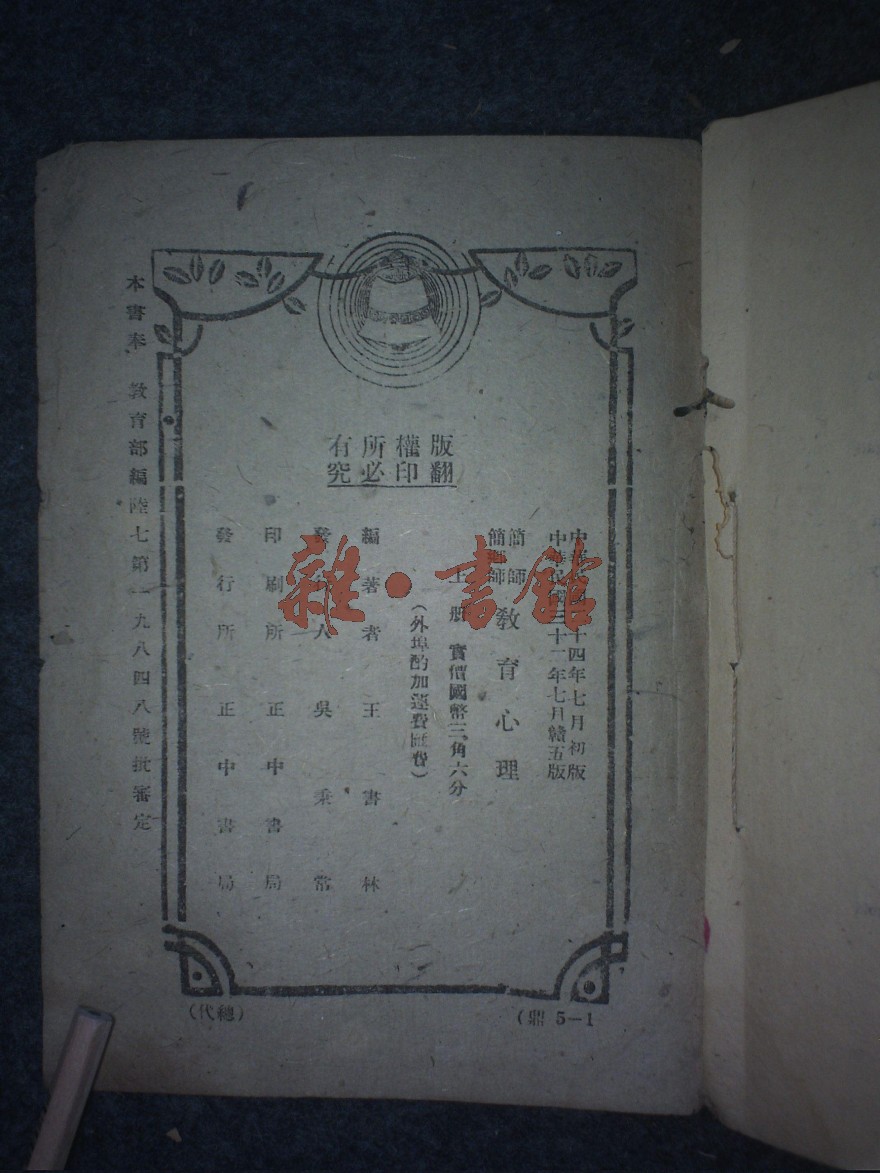 版權所有
翻印必究
中華民國二十四年七月初版
中華民國三十一年七月贛五版
簡師
簡鄉師
教育心理
上冊 實價國幣三角六分
(外埠酌加運費匯費)
編著者 王書林
發行人 吳秉常
印刷所 正中書局
發行所 正中書局
本書奉 教育部編陸七第一九八四八號批審定
(鼎 5-1
(總代)
雜·書館